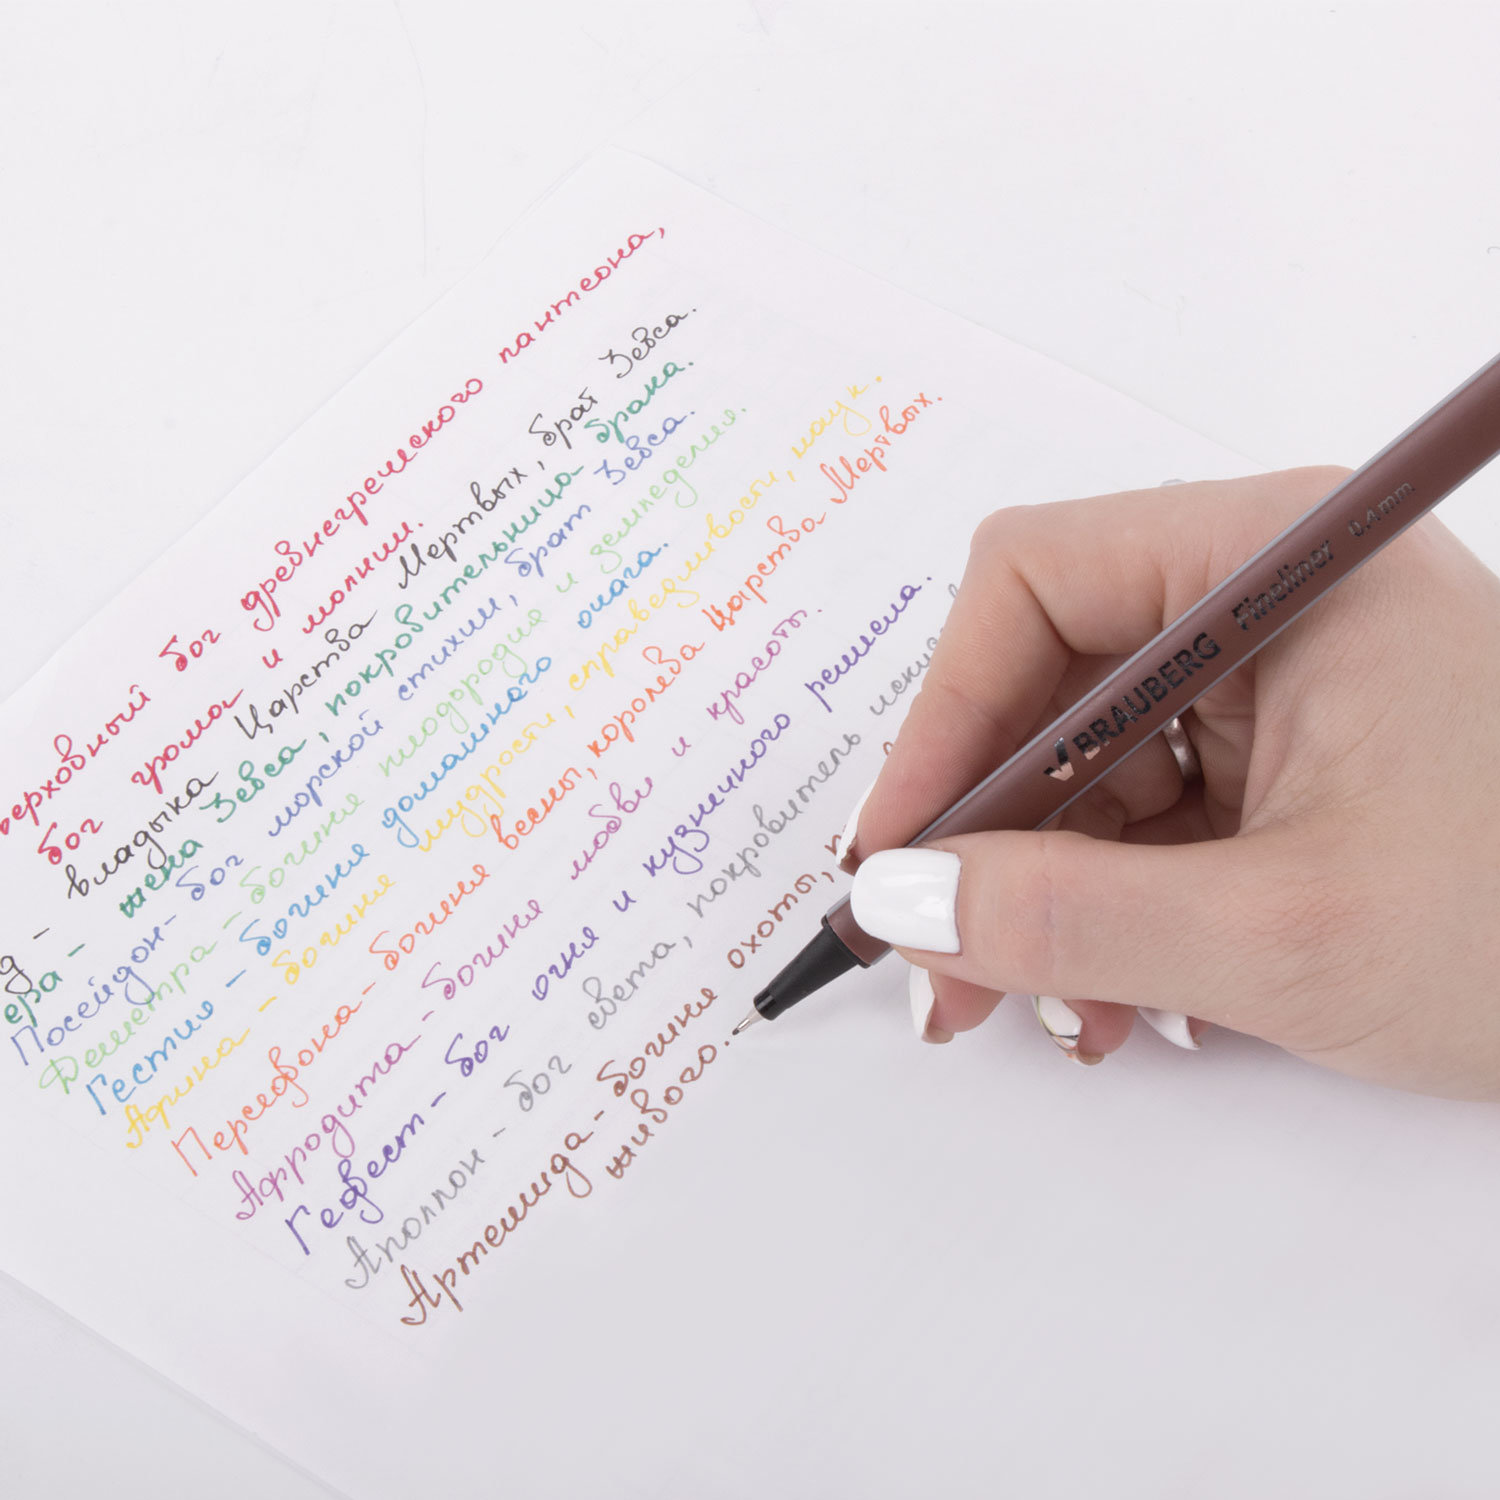 верховный бог древнегреческого пантеона,
бог грома и молнии.
владыка Царства Мертвых, брат Зевса.
ера - жена Зевса, покровительница брака.
Посейдон - бог морской стихии, брат Зевса.
Деметра - богиня плодородия и земледелия.
Гестия - богиня домашнего очага.
Афина - богиня мудрости, справедливости, наук.
Персефона - богиня весны, королева Царства Мертвых.
Афродита - богиня любви и красоты.
Гефест - бог огня и кузнечного ремесла.
Аполлон - бог света, покровитель искус
Артемида - богиня охоты,
живого.
BRAUBERG Fineliner 0,4mm